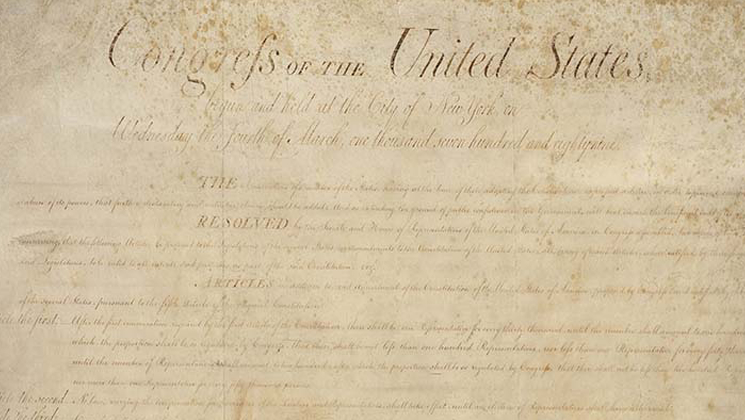 Congress OF THE United States,
begun and held at the City of New York, on
Wednesday the fourth of March, one thousand seven hundred and eighty nine.
THE Conventions of a number of the States having at the time of their adopting the Constitution, expressed a desire, in order to prevent
of its powers, that further declaratory and restrictive clauses should be added: And as extending the ground of public confidence in the Government, will best ensure the
RESOLVED by the Senate and House of Representatives of the United States of America, in Congress assembled, two
concurring, that the following Articles be proposed to the Legislatures of the several States, as Amendments to the Constitution of the United States, all or any of which Articles, when ratified by
said Legislatures, to be valid to all intents and purposes, as part of the said Constitution; viz.
ARTICLES in addition to, and Amendment of the Constitution of the United States of America, proposed by Congress, and ratified by the
of the several States, pursuant to the fifth Article of the Original Constitution.
the first. After the first enumeration required by the first Article of the Constitution, there shall be one Representative for every thirty thousand, until the number shall amount to one hundred,
which, the proportion shall be so regulated by Congress, that there shall be not less than one hundred Representatives, nor less than one Representative for every forty
until the number of Representatives shall amount to two hundred, after which, the proportion shall be so regulated by Congress, that there shall not be less than two hundred
nor more than one Representative for every fifty thousand persons.
the second. No law, varying the compensation for the services of the Senators and Representatives, shall take effect, until an election of Representatives shall have intervened.